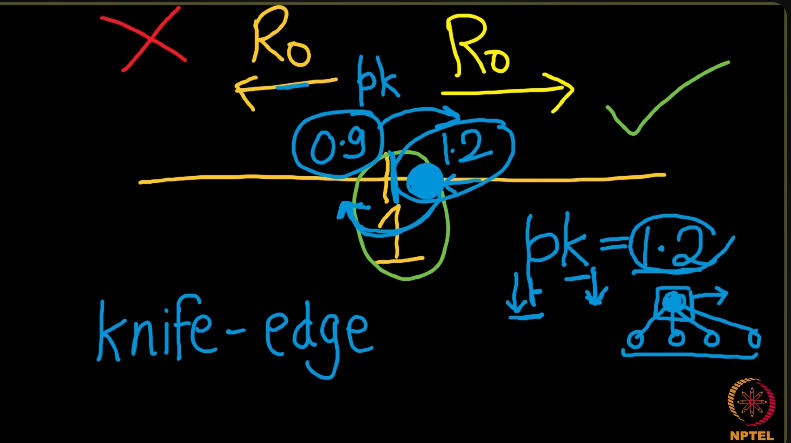 R₀ R₀
pk
0.9 1.2
1
pk = 1.2
knife-edge
NPTEL